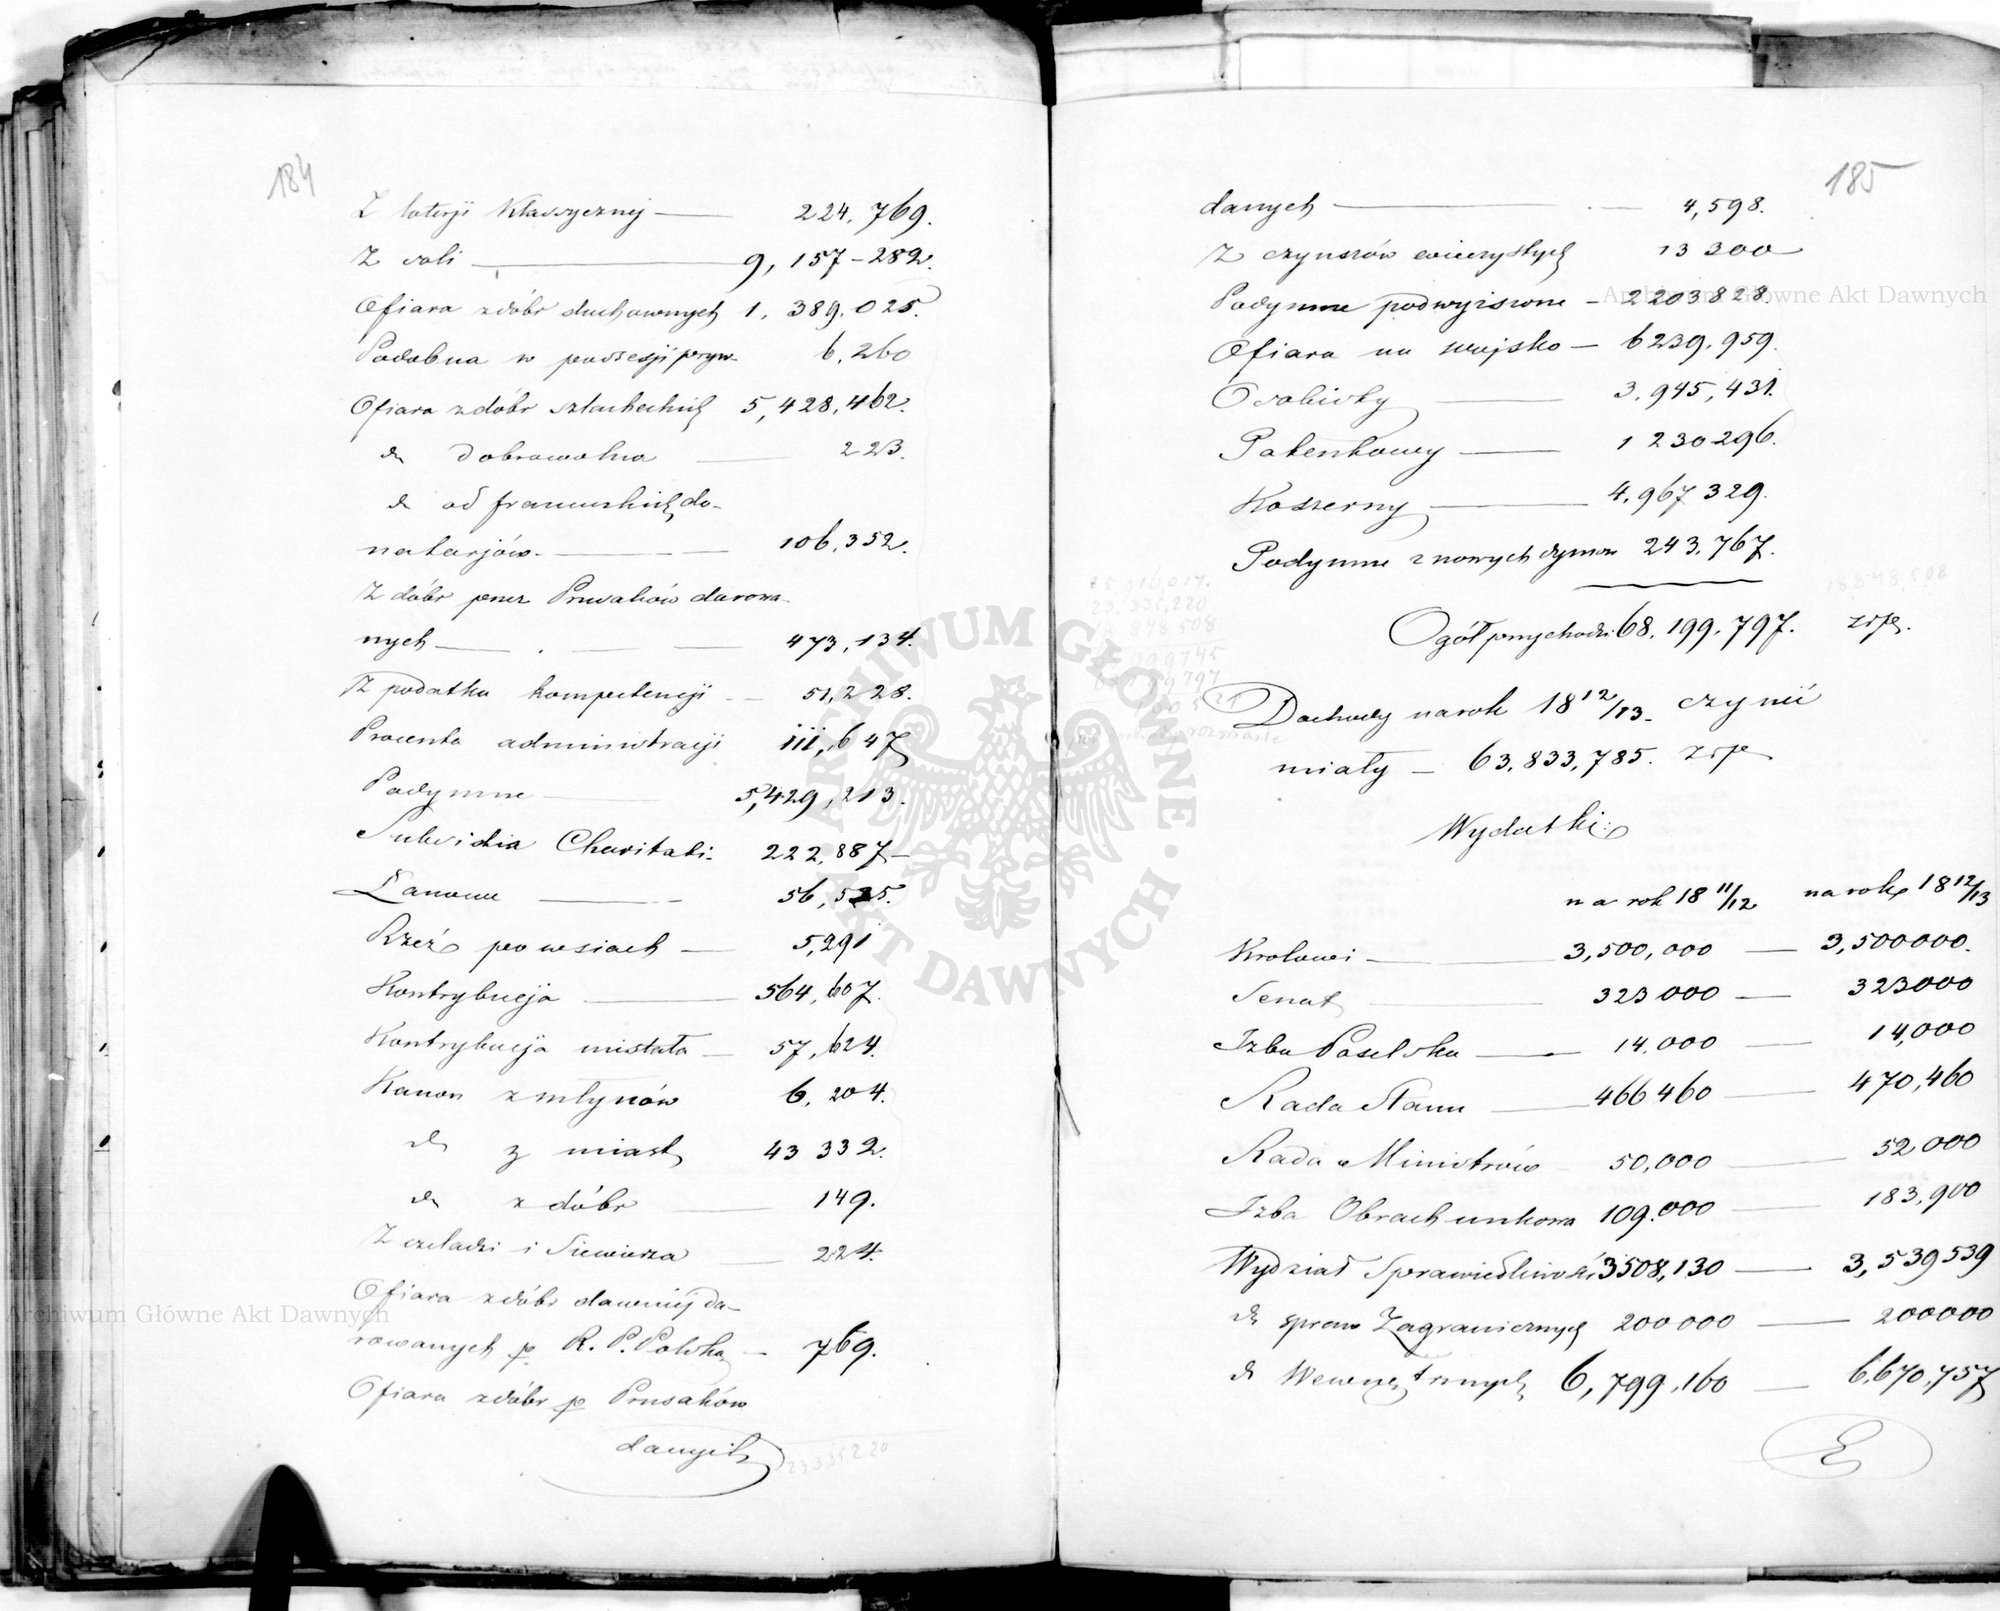 184
Z loterji Klassycznej — 224,769.
Z soli — 9,157-282.
Ofiara z dóbr duchownych 1.389.025.
Podobna w possesji pryw. 6.260
Ofiara z dóbr szlacheckich 5,428,462.
dto Dobrowolna — 223.
dto od francuskich do-
natarjów — 106,352.
Z dóbr przez Prusaków darowa-
nych — 473,134.
Z podatku kompetencji — 51,228.
Procenta administracji 111,647
Podymne — 5,429,213.
Subsidia Charitati. 222,887 —
Łanowe — 56,525.
Rzeź po wsiach — 5,291
Kontrybucja — 564,607.
Kontrybucja mistata — 57,624.
Kanon z młynów 6,204.
dto z miast 43 332.
dto z dóbr — 149.
Z czeladzi i Siewierza — 224.
Ofiara z dóbr dawniéj da-
rowanych p. R. P. Polską — 769.
Ofiara z dóbr p Prusaków
danych
23335220
185
danych — 4,598.
Z czynszów wieczystych 13 300
Podymne podwyższone — 2203828.
Ofiara na wojsko — 6239,959.
Osobisty — 3,945,431.
Patentowy — 1 230296.
Koszerny — 4,967 329.
Podymne z nowych dymów 243,767.
Ogół przychodu 68,199,797. złp.
Dochody na rok 18 12/13 czynić
miały — 63,833,785. złp
Wydatki:
na rok 18 11/12 na rok 18 12/13
Krolowi — 3,500,000 — 3,500000.
Senat — 323000 — 323000
Izba Poselska — 14.000 — 14,000
Rada Stanu — 466460 — 470,460
Rada Ministrów 50,000 — 52000
Izba Obrachunkowa 109.000 — 183,900
Wydział Sprawiedliwości 3508,130 — 3,539539
dto spraw Zagranicznych 200000 — 200000
dto Wewnętrznych 6,799,160 — 6,670,757
Archiwum Główne Akt Dawnych
Archiwum Główne Akt Dawnych
ARCHIWUM GŁÓWNE AKT DAWNYCH